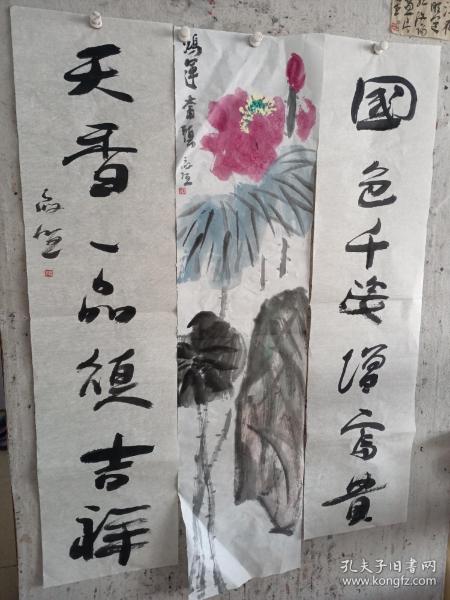 國色千姿增富貴
鴻運當頭
天香一品頌吉祥
孔夫子旧书网
www.kongfz.com